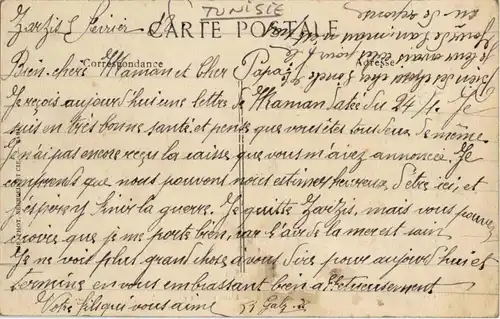 TUNISIE
Zarzis 5 Février
CARTE POSTALE
Correspondance
Adresse
Bien chers Maman et Cher Papa
Je reçois aujourd'hui une lettre de Maman datée du 24/1. Je
suis en très bonne santé et pense que vous êtes tous deux de même
Je n'ai pas encore reçu la caisse que vous m'avez annoncée. Je
comprends que nous pouvons nous estimer heureux d'être ici, et
j'espère y finir la guerre. Je quitte Zarzis, mais vous pouvez
croire que je me porte bien, car l'air de la mer est sain
Je ne vois plus grand chose à vous dire pour aujourd'hui et
termine en vous embrassant bien affectueusement
Votre fils qui vous aime